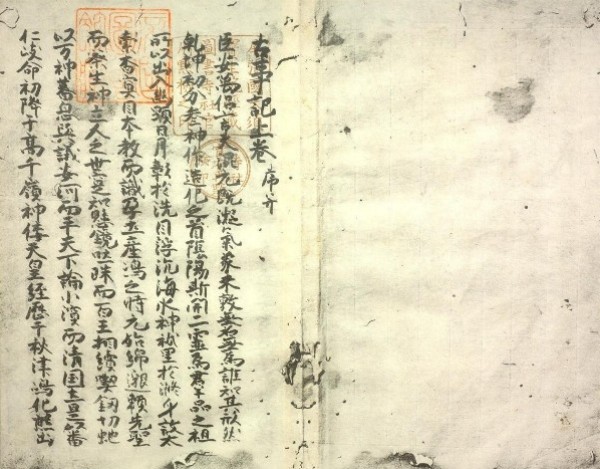 古事記上巻 序并
臣安萬侶言夫混元既凝氣象未敦無名無為誰知其形然
乾坤初分参神作造化之首陰陽斯開二霊為群品之祖
所以出入幽顕日月彰於洗目浮沉海水神祇呈於滌身故太
素杳冥因本教而識孕土産嶋之時元始綿邈頼先聖
而察生神立人之世寔知懸鏡吐珠而百王相續喫釼切蛇
以万神蕃息与議安河而平天下論小濱而清国土是以番
仁岐命初降于高千嶺神倭天皇經歴于秋津嶋化熊出